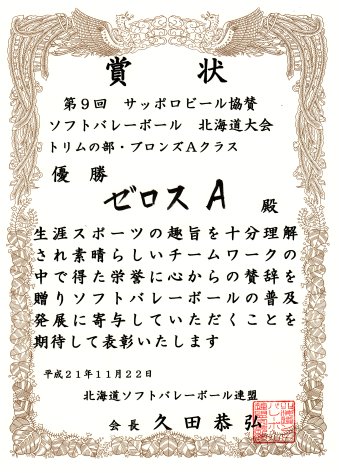 賞状
第9回 サッポロビール協賛
ソフトバレーボール 北海道大会
トリムの部・ブロンズAクラス
優勝
ゼロスA 殿
生涯スポーツの趣旨を十分理解
され素晴らしいチームワークの
中で得た栄誉に心からの賛辞を
贈りソフトバレーボールの普及
発展に寄与していただくことを
期待して表彰いたします
平成21年11月22日
北海道ソフトバレーボール連盟
会長 久田恭弘